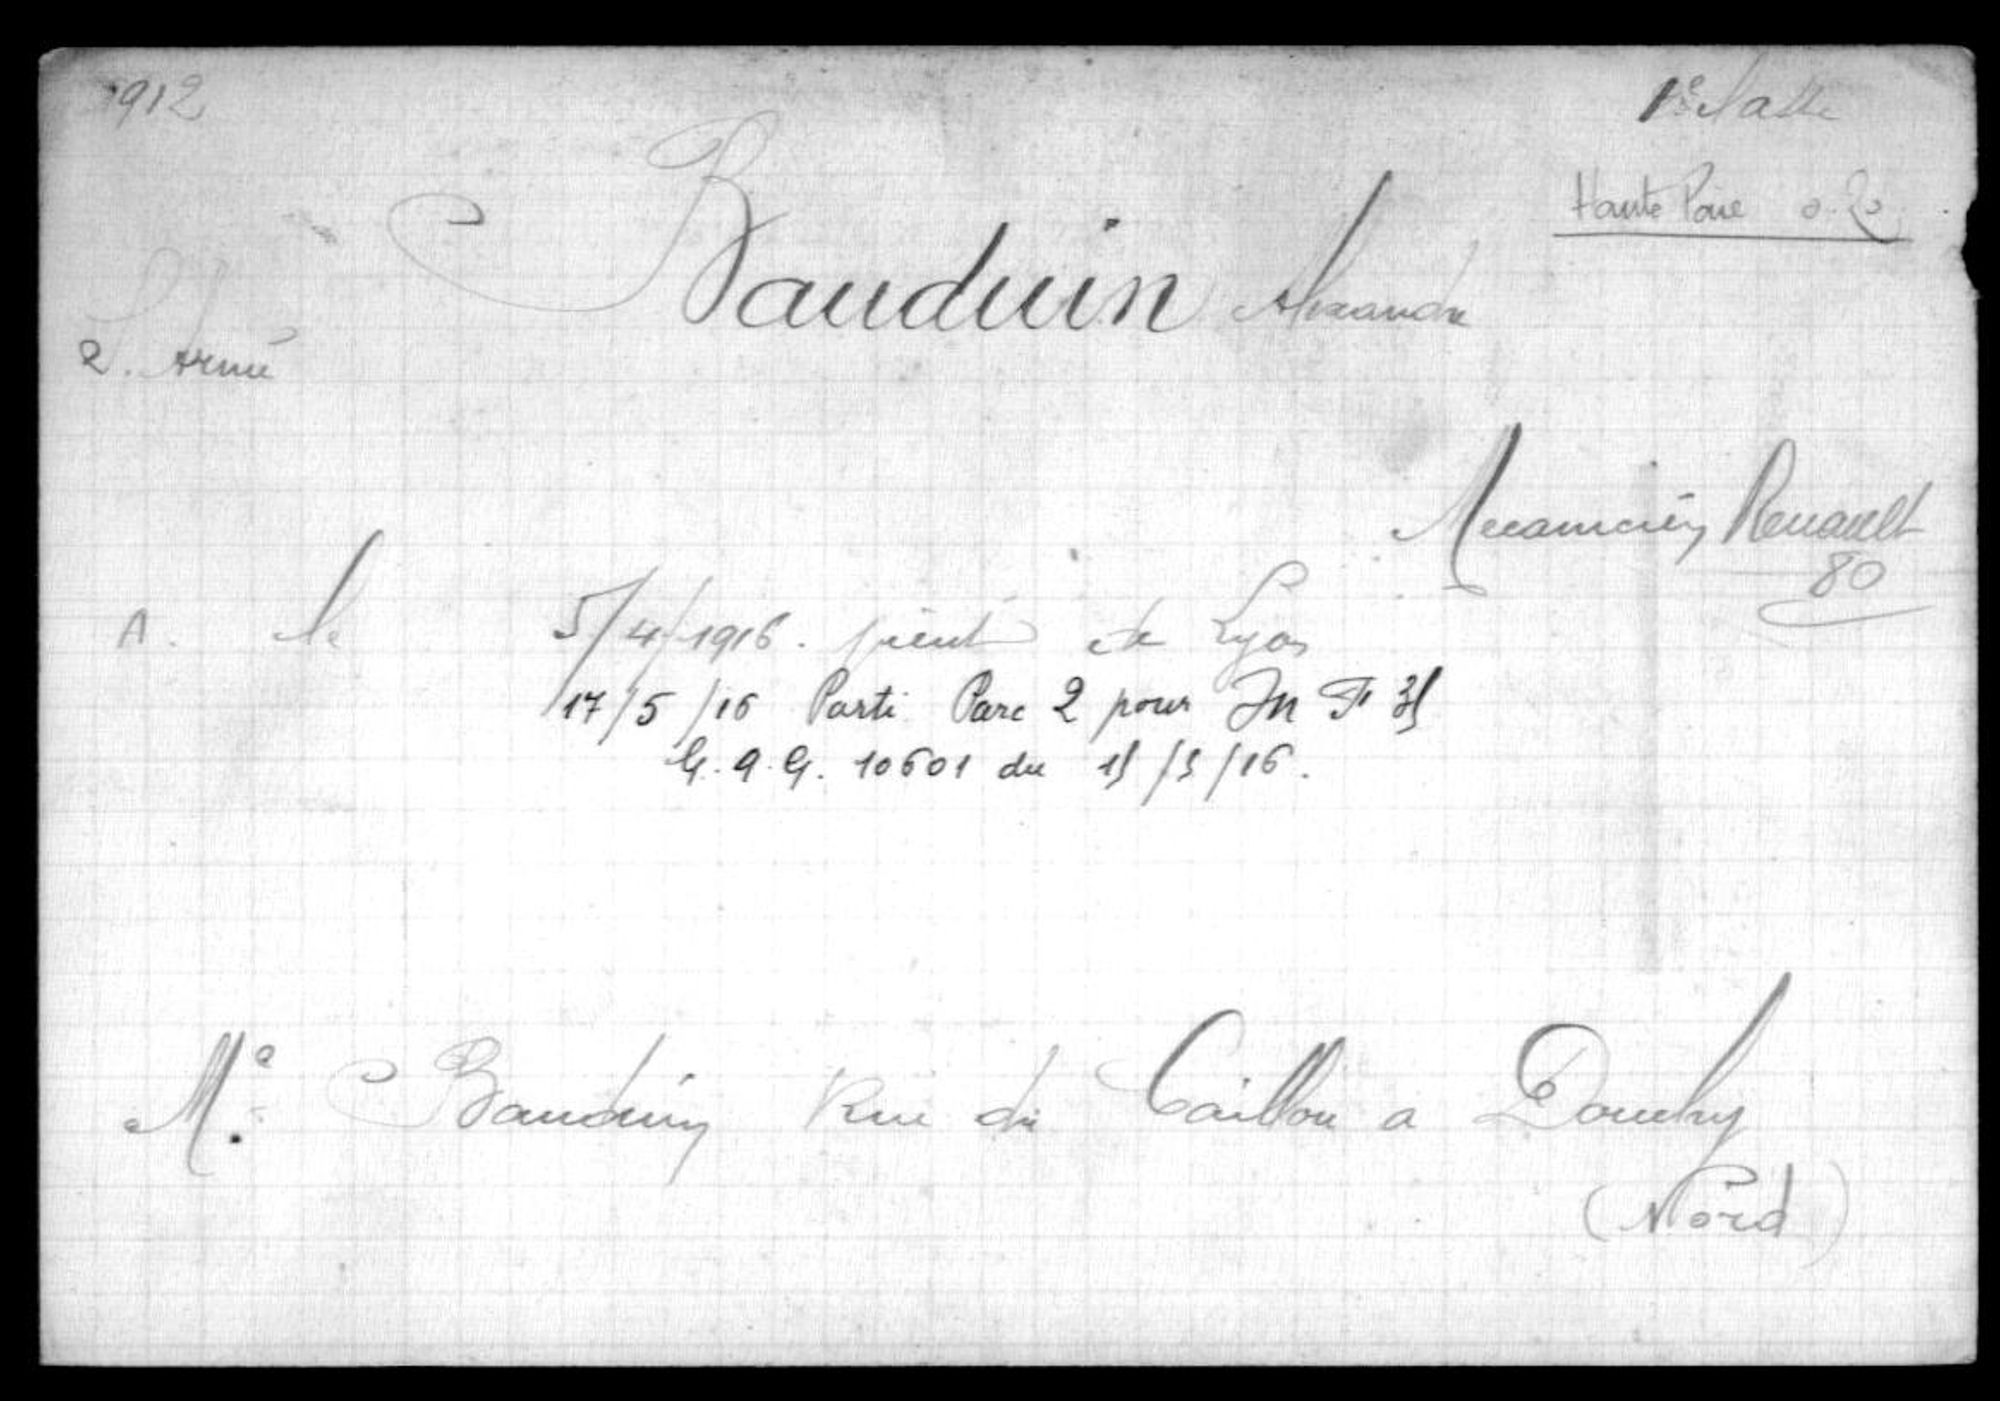 1912
1e Classe
Haute Paie 0.20
Bauduin Alexandre
2. Armée
Mecanicien Renault
80
A. le 5/4/1916. vient de Lyon
17/5/16 Parti Parc 2 pour
G.Q.G. 10601 du 15/5/16.
Me Bauduin Rue du Caillou a Douchy
(Nord)